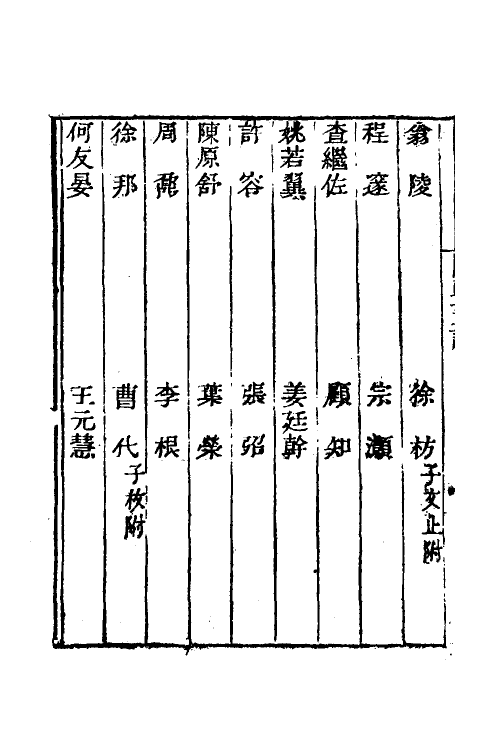 翁陵　徐枋子文止附
程邃　宗灝
查繼佐　顧知
姚若翼　姜廷幹
許容　張弨
陳原舒　葉榮
周　李根
徐邦　曹代子枚附
何友晏　王元慧